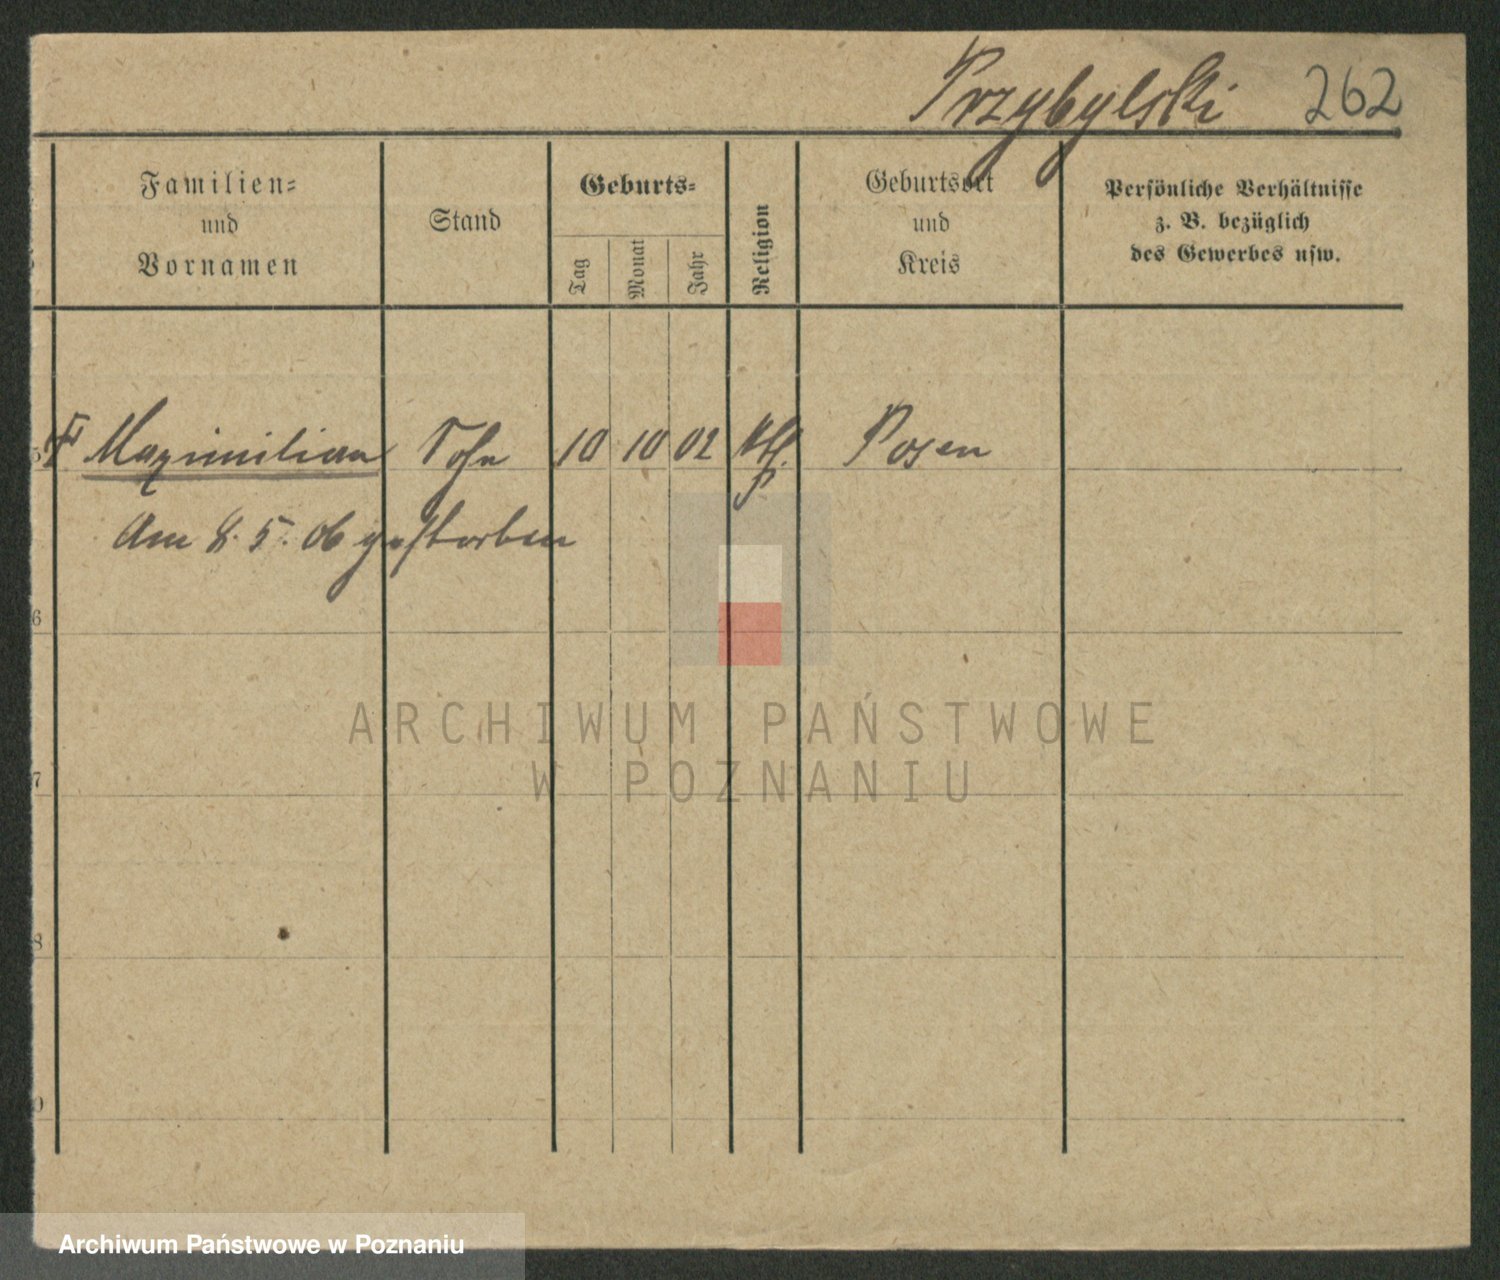 Przybylski 262
Familien=
und
Vornamen
Stand
Geburts=
Tag
Monat
Jahr
Religion
Geburtsort
und
Kreis
Persönliche Verhältnisse
z. B. bezüglich
des Gewerbes usw.
Maximilian Sohn 10 10 02 kth. Posen
Am 8. 5. 06 gestorben
6
7
8
ARCHIWUM PAŃSTWOWE
W POZNANIU
Archiwum Państwowe w Poznaniu